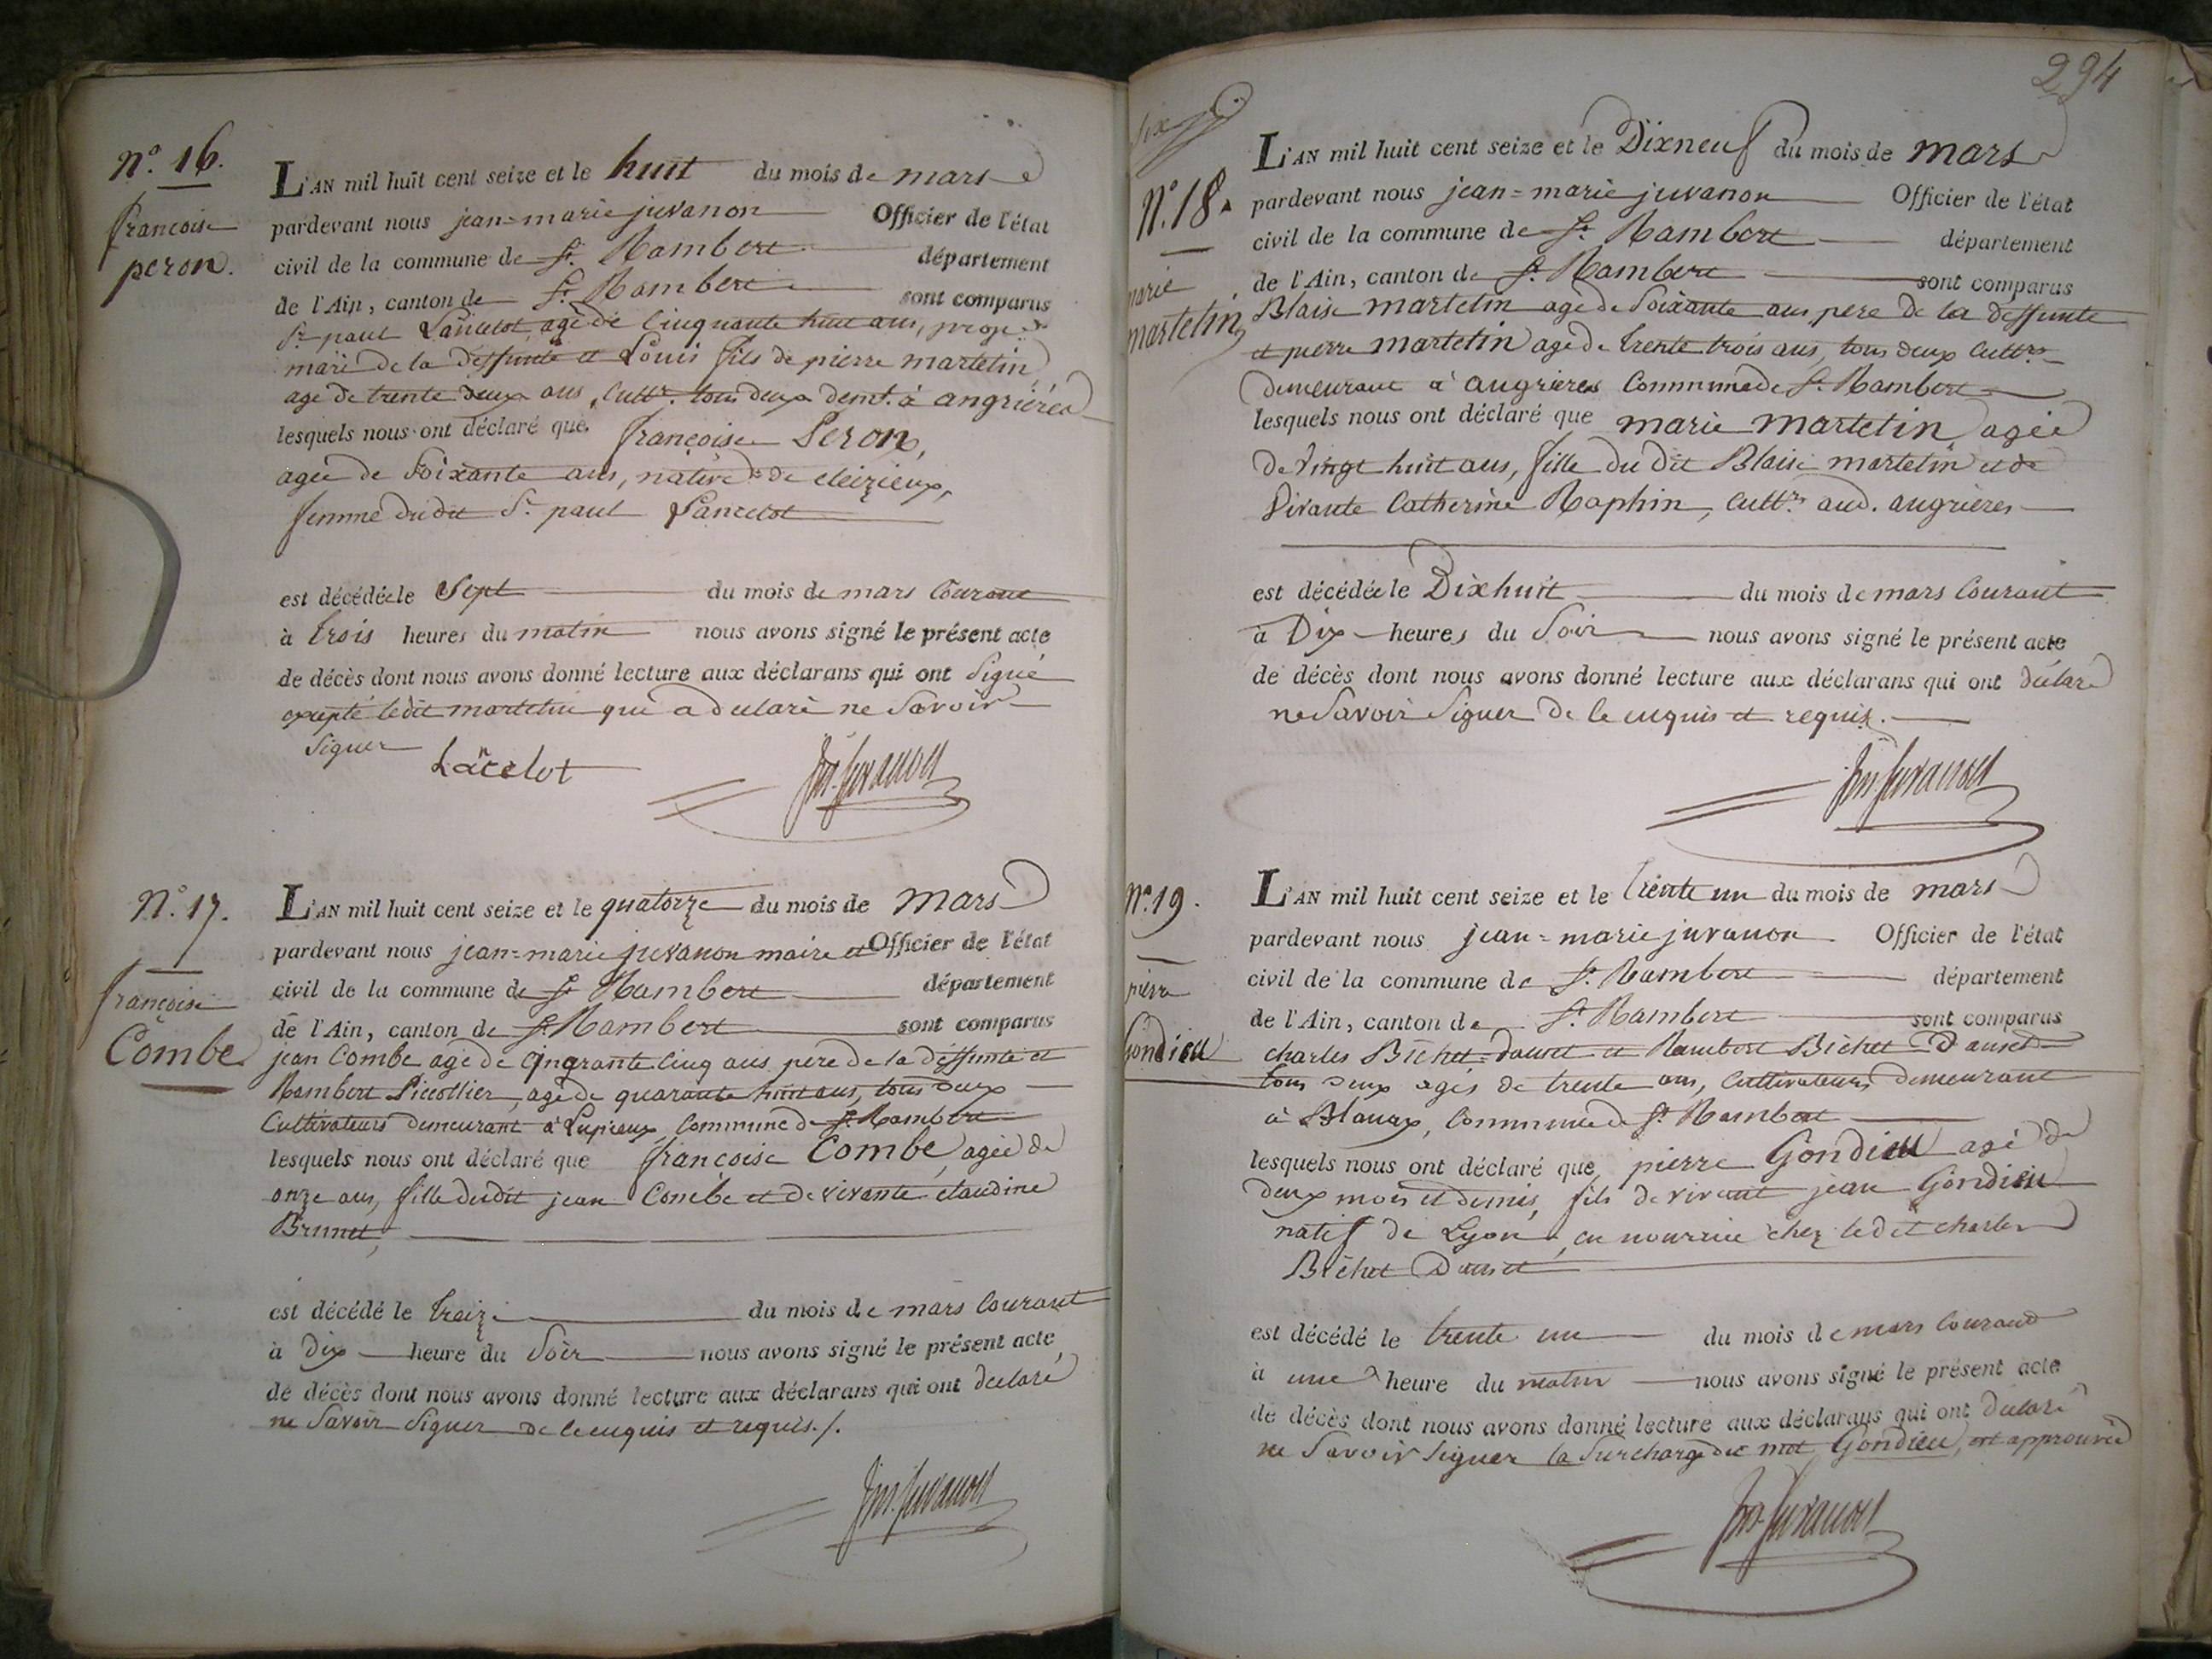 N.o 16.
françoise
peron.
L'AN mil huit cent seize et le huit du mois de mars
pardevant nous jean=marie juvanon Officier de l'état
civil de la commune de St. Rambert département
de l'Ain, canton de St. Rambert sont comparus
St paul Lancelot, agé de Cinquante huit ans, prop.re
mari de la deffunte et Louis fils de pierre martelin
agé de trente deux ans, cultr. tous deux demt. à angrières
lesquels nous ont déclaré que françoise Peron,
agée de Soixante ans, native de cleizieux,
femme dudit St. paul Lancelot
est décédée le Sept du mois de mars Courant
à trois heures du matin nous avons signé le présent acte
de décès dont nous avons donné lecture aux déclarans qui ont Signé
excepté ledit martelin qui a déclaré ne Savoir
Signer
Lãcelot
Jm. Juvanon
N.o 17.
françoise
Combe
L'AN mil huit cent seize et le quatorze du mois de mars
pardevant nous jean=marie juvanon maire et Officier de l'état
civil de la commune de St Rambert département
de l'Ain, canton de St Rambert sont comparus
jean Combe agé de Cinqrante Cinq ans pere de la deffunte et
Rambert Picollier, agé de quarante huit ans, tous deux
Cultivateurs demeurant à Lupieux Commune de St. Rambert
lesquels nous ont déclaré que françoise Combe, agée de
onze ans, fille dudit jean Combe et de vivante claudine
Brunet,
est décédé le treize du mois de mars Courant
à Dix heure du Soir nous avons signé le présent acte
de décès dont nous avons donné lecture aux déclarans qui ont déclaré
ne Savoir Signer de ce enquis et requis./.
Jm. Juvanon
294
Six
N.o 18.
marie
martelin
L'AN mil huit cent seize et le Dixneuf du mois de mars
pardevant nous jean=marie juvanon Officier de l'état
civil de la commune de St. Rambert département
de l'Ain, canton de St. Rambert sont comparus
Blaise martelin agé de Soixante ans, pere de la deffunte
et pierre martelin agé de trente trois ans, tous deux Cultrs.
demeurant à angrieres Commune de St. Rambert
lesquels nous ont déclaré que marie martelin agée
de Vingt huit ans, fille du dit Blaise martelin et de
Vivante Catherine Raphin, Cultrs. aud. angrieres
est décédée le Dixhuit du mois de mars Courant
à Dix heures du Soir nous avons signé le présent acte
de décès dont nous avons donné lecture aux déclarans qui ont déclaré
ne Savoir Signer de ce enquis et requis.
Jm. Juvanon
N.o 19.
pierre
Gondieu
L'AN mil huit cent seize et le trente un du mois de mars
pardevant nous jean=marie juvanon Officier de l'état
civil de la commune de St. Rambert département
de l'Ain, canton de St. Rambert sont comparus
charles Bichet=dauset et Rambert Bichet=Dauset
tous deux agés de trente ans, Cultivateurs demeurant
à Blanaz, Commune de St. Rambert
lesquels nous ont déclaré que pierre Gondieu agé de
deux mois et demis, fils de vivant jean Gondieu
natif de Lyon, en nourrice chez ledit charles
Bichet Dauset
est décédé le trente un du mois de mars Courant
à une heure du matin nous avons signé le présent acte
de décès dont nous avons donné lecture aux déclarans qui ont déclaré
ne Savoir Signer la Surcharge du mot Gondieu, est approuvée
Jm. Juvanon